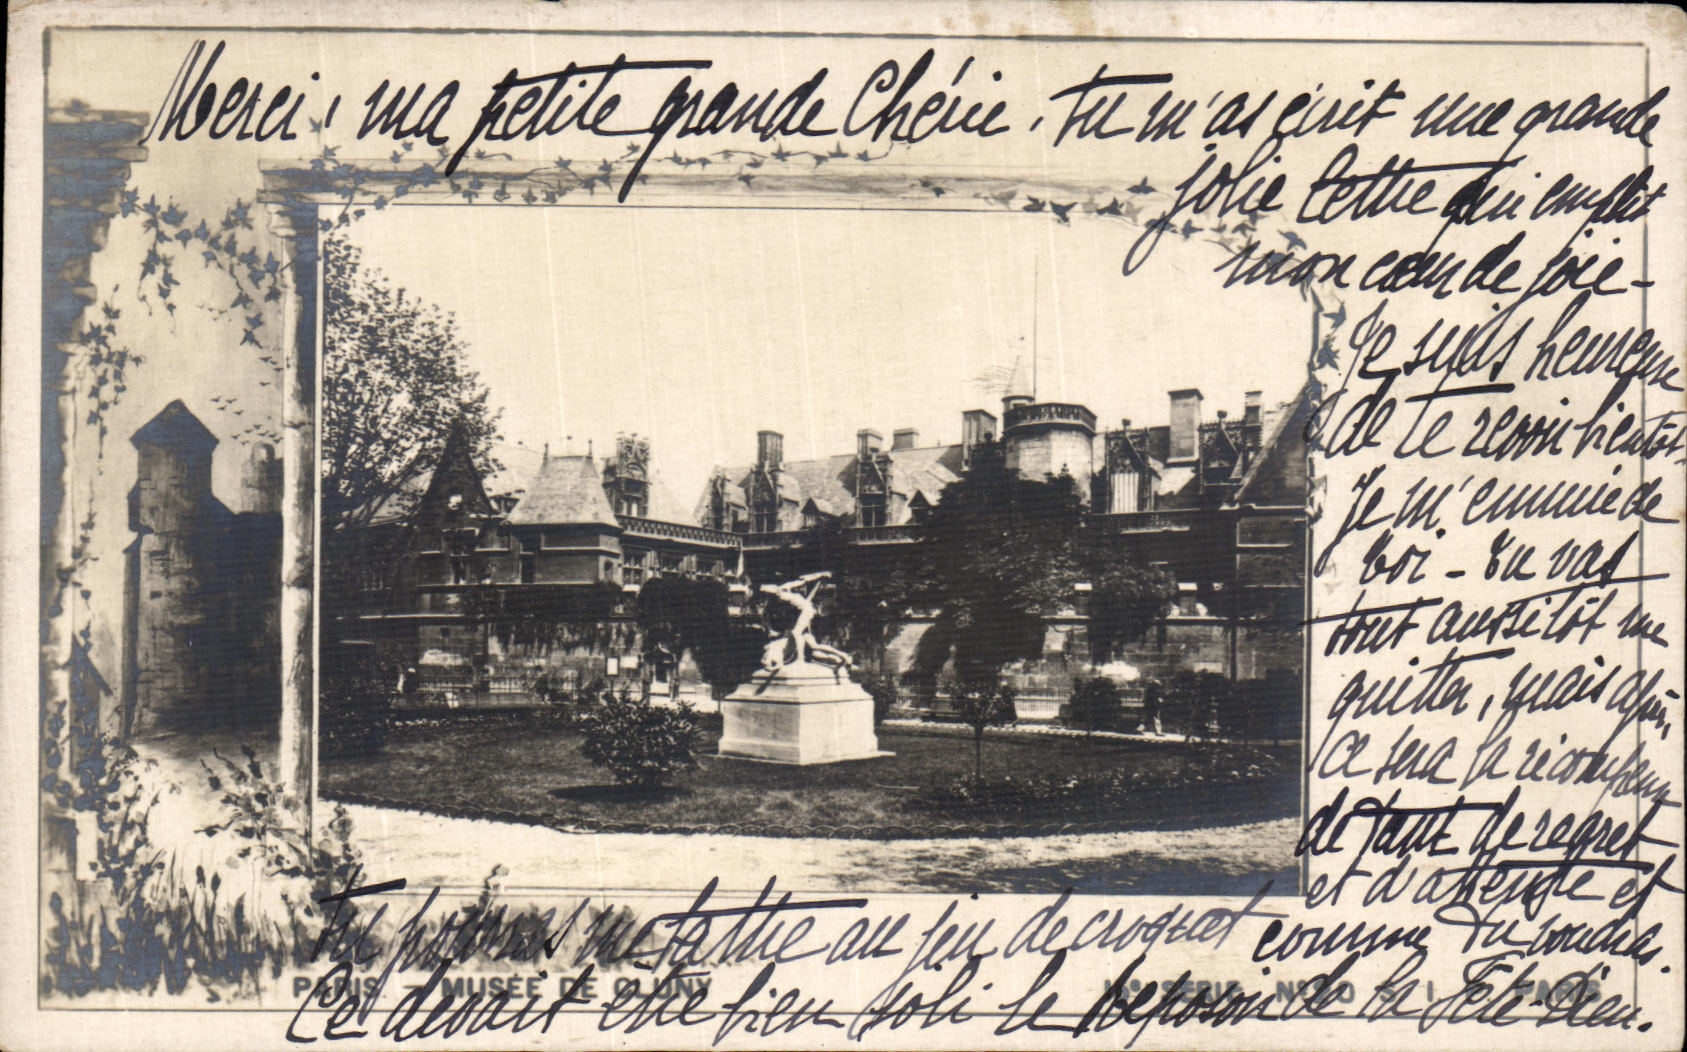 Merci, ma petite grande Chérie. Tu m'as écrit une grande
jolie lettre qui emplit
mon cœur de joie -
Je suis heureuse
de te revoir bientôt.
Je m'ennuie de
toi - tu vas
tout aussitôt me
quitter, mais après,
ce sera la récompense
de tant de regret
et d'attente et
comme tu voudras.
Tu pourras me battre au jeu de croquet
PARIS - MUSÉE DE CLUNY
SÉRIE N°
PARIS
Ce devait être bien joli le reposoir de la Fête-Dieu.